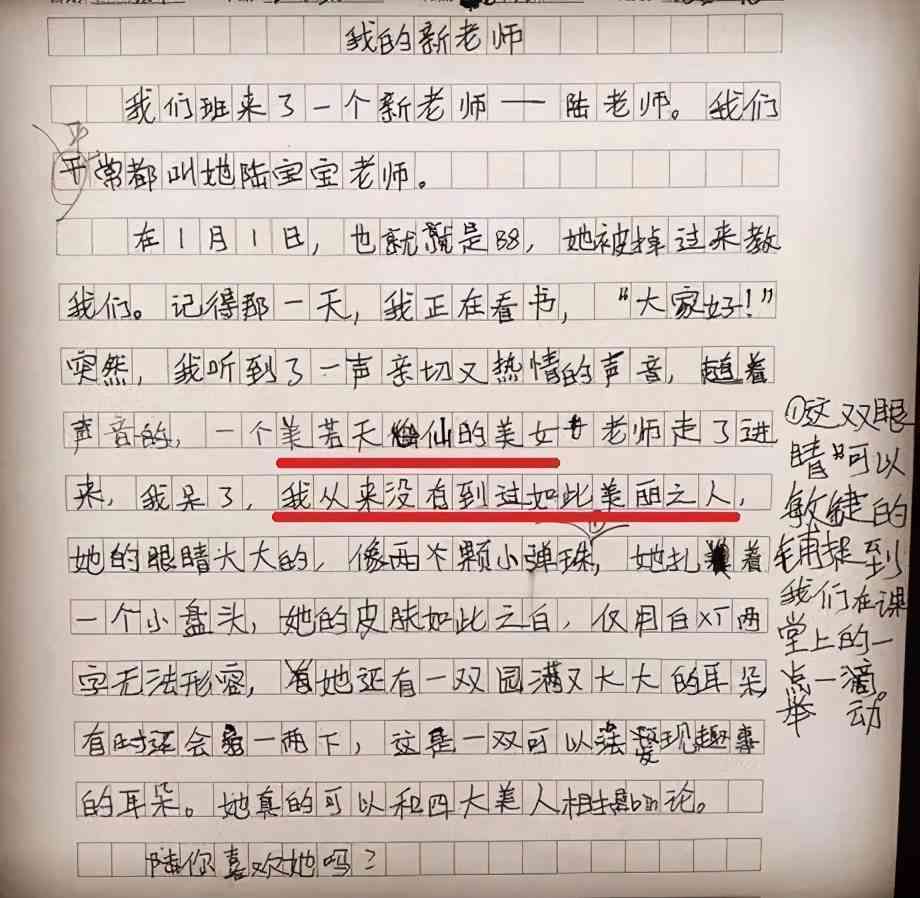 我的新老师
我们班来了一个新老师——陆老师。我们
平常都叫她陆宝宝老师。
在1月1日，也就是38，她被掉过来教
我们。记得那一天，我正在看书，“大家好！”
突然，我听到了一声亲切又热情的声音，趋着
声音的，一个美若天仙的美女老师走了进
来，我呆了，我从来没有到过如此美丽之人，
她的眼睛大大的，像两个颗小弹珠，她扎着
一个小盘头，她的皮肤如此之白，仅用白红两
字无法形容，她还有一双园满又大大的耳朵
有时还会一两下，这是一双可以发现趣事
的耳朵。她真的可以和四大美人相提并论。
陆你喜欢她吗？
①这双眼
睛可以
敏健的
铺捉到
我们在课
堂上的一
点一滴。
举动